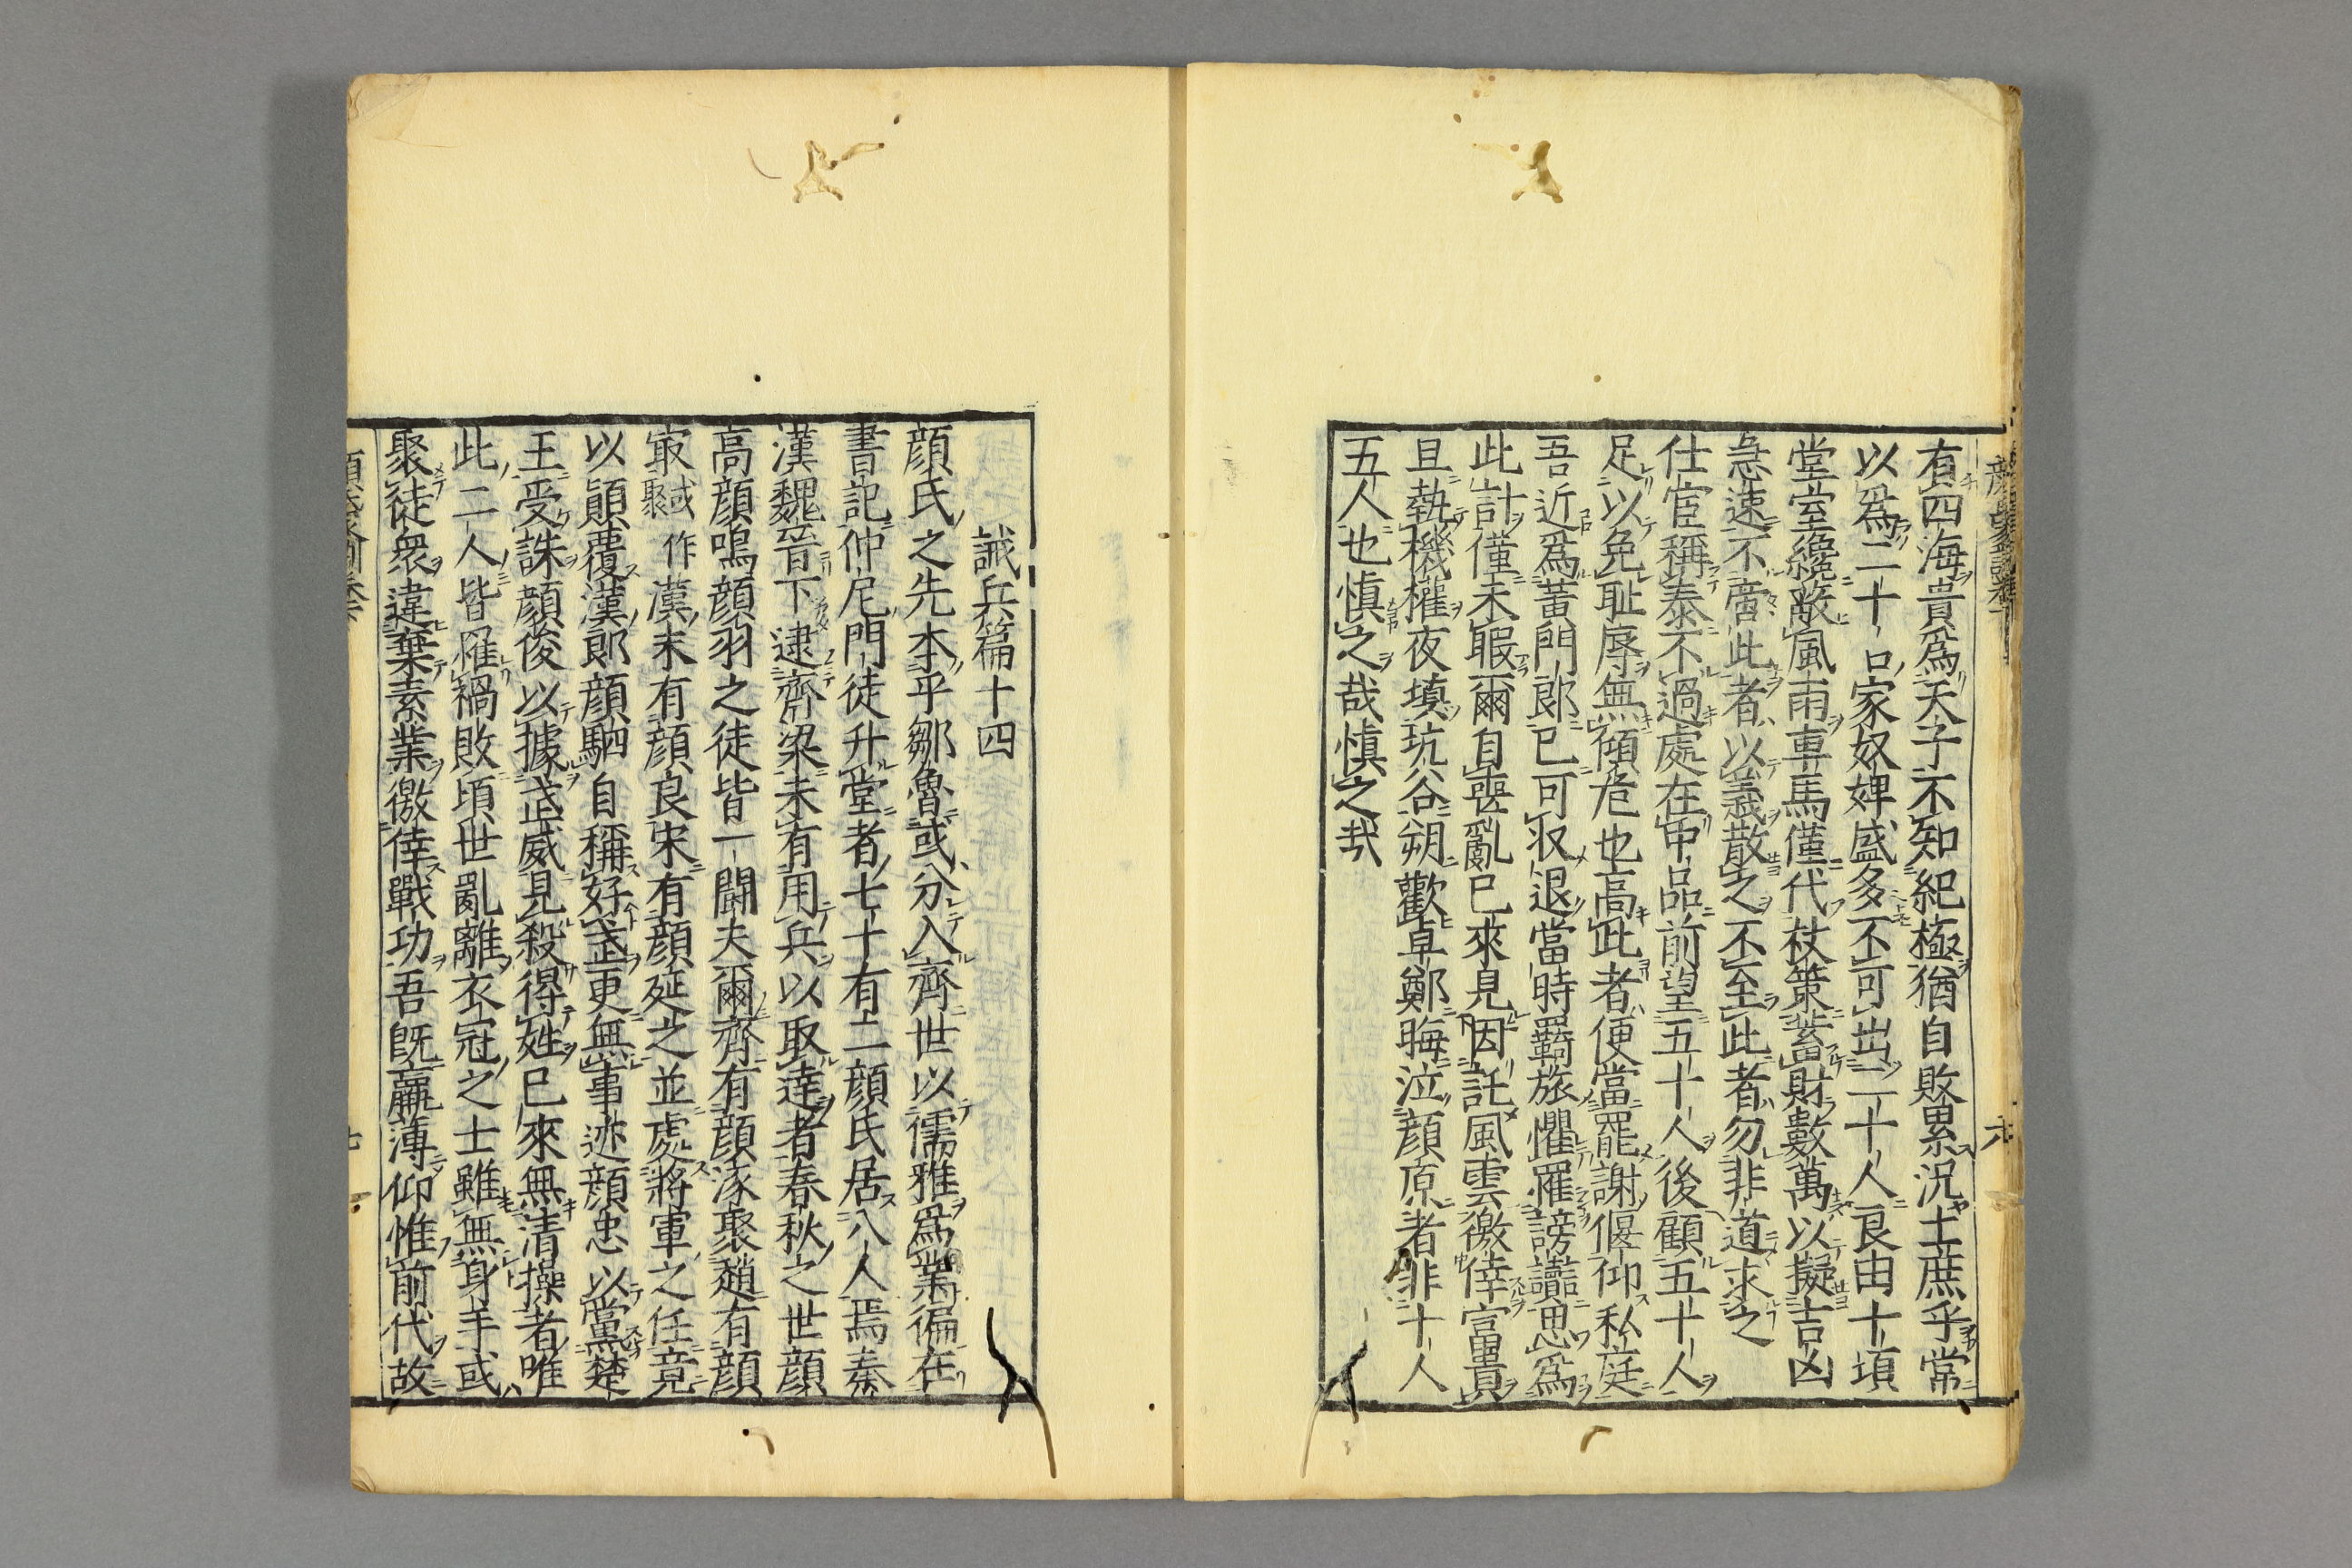 有四海貴爲天子不知紀極猶自敗累況士庶乎常
以爲二十口家奴婢盛多不可出二十人良田十頃
堂室纔蔽風雨車馬僅代杖策蓄財數萬以擬吉凶
急速不啻此者以義散之不至此者勿非道求之
仕宦稱泰不過處在中品前望五十人後顧五十人
足以免耻辱無傾危也高此者便當罷謝偃仰私庭
吾近爲黃門郎已可收退當時羇旅懼罹謗讟思爲
此計僅未暇爾自喪亂已來見因託風雲徼倖富貴
旦執機權夜塡坑谷朔歡卓鄭晦泣顔原者非十人
五人也愼之哉愼之哉
誡兵篇十四
顔氏之先本乎鄒魯或分入齊世以儒雅爲業徧在
書記仲尼門徒升堂者七十有二顔氏居八人焉秦
漢魏晉下逮齊梁未有用兵以取達者春秋之世顔
高顔鳴顔羽之徒皆一鬪夫爾齊有顔涿聚趙有顔
冣或作聚漢末有顔良宋有顔延之並處將軍之任竟
以顚覆漢郎顔駟自稱好武更無事迹顔忠以黨楚
王受誅顔俊以據武威見殺得姓已來無清操者唯
此二人皆罹禍敗頃世亂離衣冠之士雖無身手或
聚徒衆違棄素業徼倖戰功吾既羸薄仰惟前代故